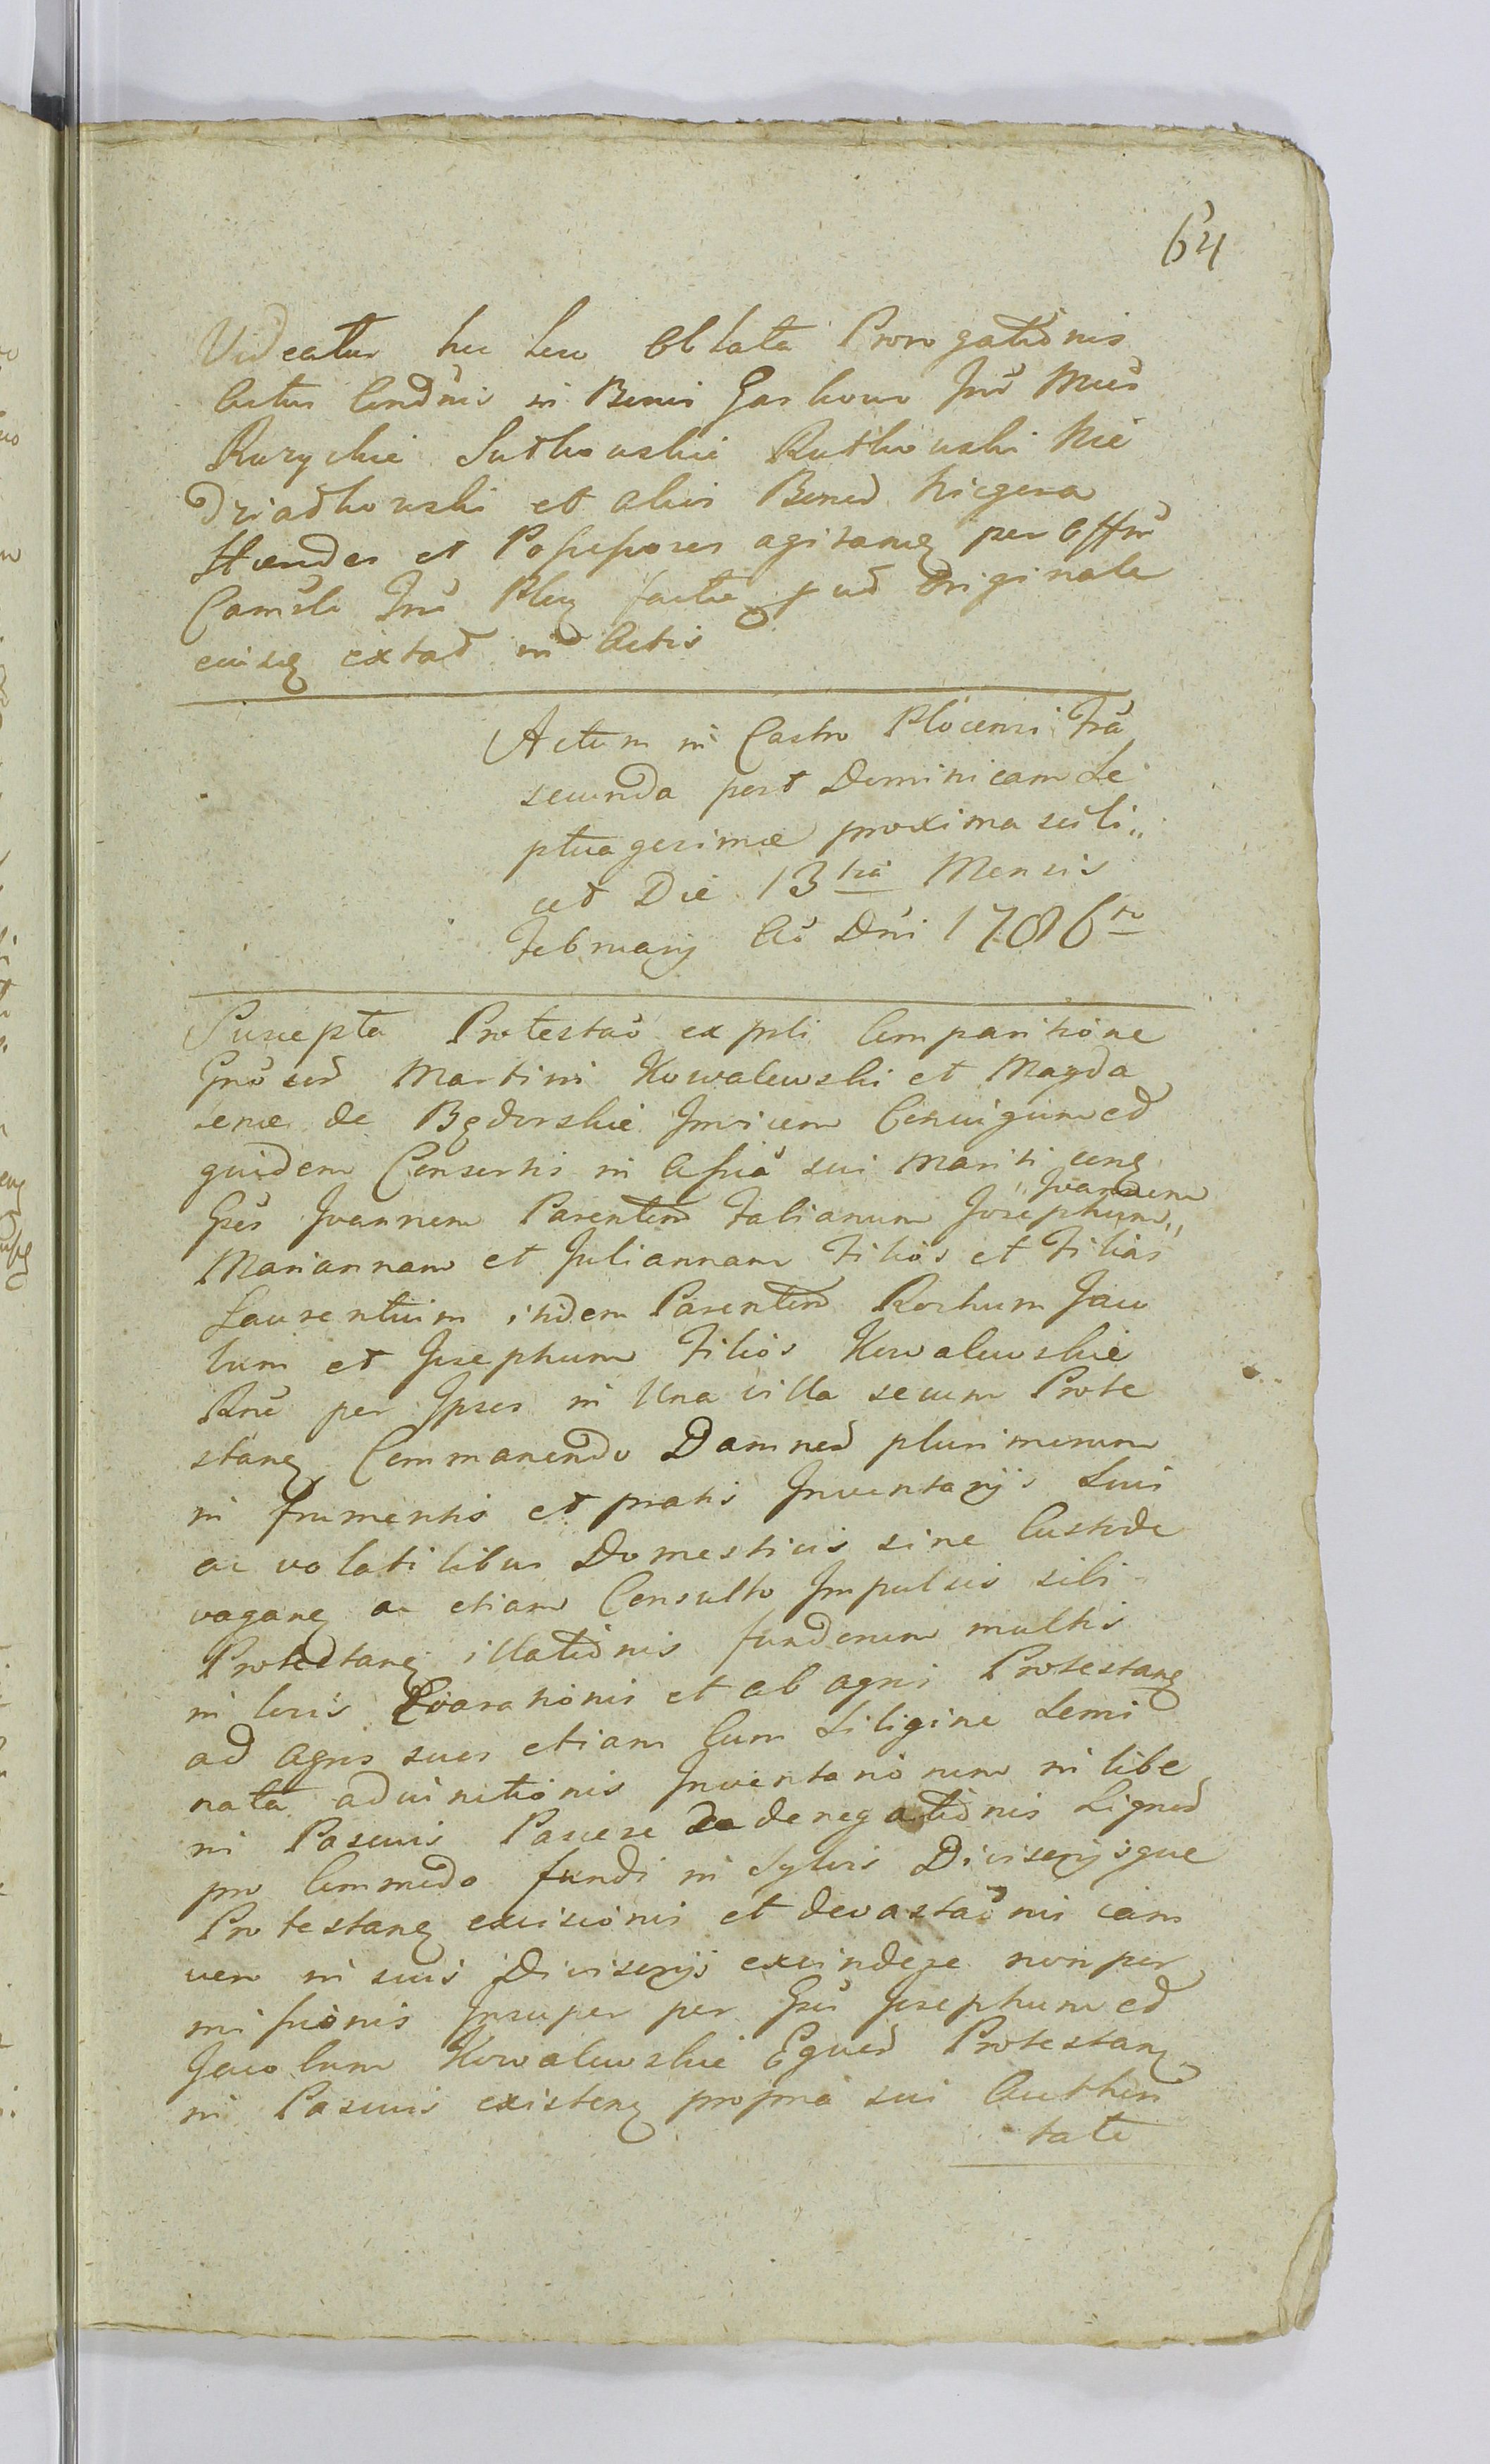 64
Videatur hic loco Oblata Prorogationis
Actus Condnis in Bonis Garkowo Inr Mus
Rurychie Sutkowskie Rutkowski Nie
dziadkowski et aliis Bonod
Haeredes et Possessores agitanę per Offm
Camsli Trri Plcę factae qud Originale
cuisq extat in Actis
Actum in Castro Plocensi Fra
secunda post Dominicam Se
ptuagesimae proxima scili„
cet Die 13tia Mensis
February Ao Dni 1786to
Suscepta Protestao ex psli Comparitione
Gnosod Martini Kowalewski et Magda
lenae de Będorskie Invicem Coniugum ed
quidem Consortis in Assia sui Mariti conę
Gsos Joannem Parentem Fabianum Josephum„
„Joannem
Mariannam et Juliannam Filios et Filias
Laurentium itidem Parentem Rochum Jaco
bum et Josephum Filios Kowalewskie
Rne per Ipsos in Una villa secum Prote
stanę Commanendo Damnod plurimorum
in frumentis et pratis Inventarijs suis
ac volatilibus Domesticis sine Custode
vaganę ac etiam Consulto Impulsis sibi
Protestanę illationis fundorum multis
in locis Exarationis et ab agris Protestanę
ad Agros suos etiam Cum Siligine Semi
nata adiunctionis Inventariorum in libe
ris Pascuis Pascere denegationis Lignod
pro Commodo fundi in Sylvis Divisorijsque
Protestanę excisionis et devastaonis iam
vero in suis Divisorijs exscindere non per
missionis Insuper per Gsos Josephum ed
Jacobum Kowalewskie Equod Protestanę
in Pascuis existenę propria sui Authori
tate